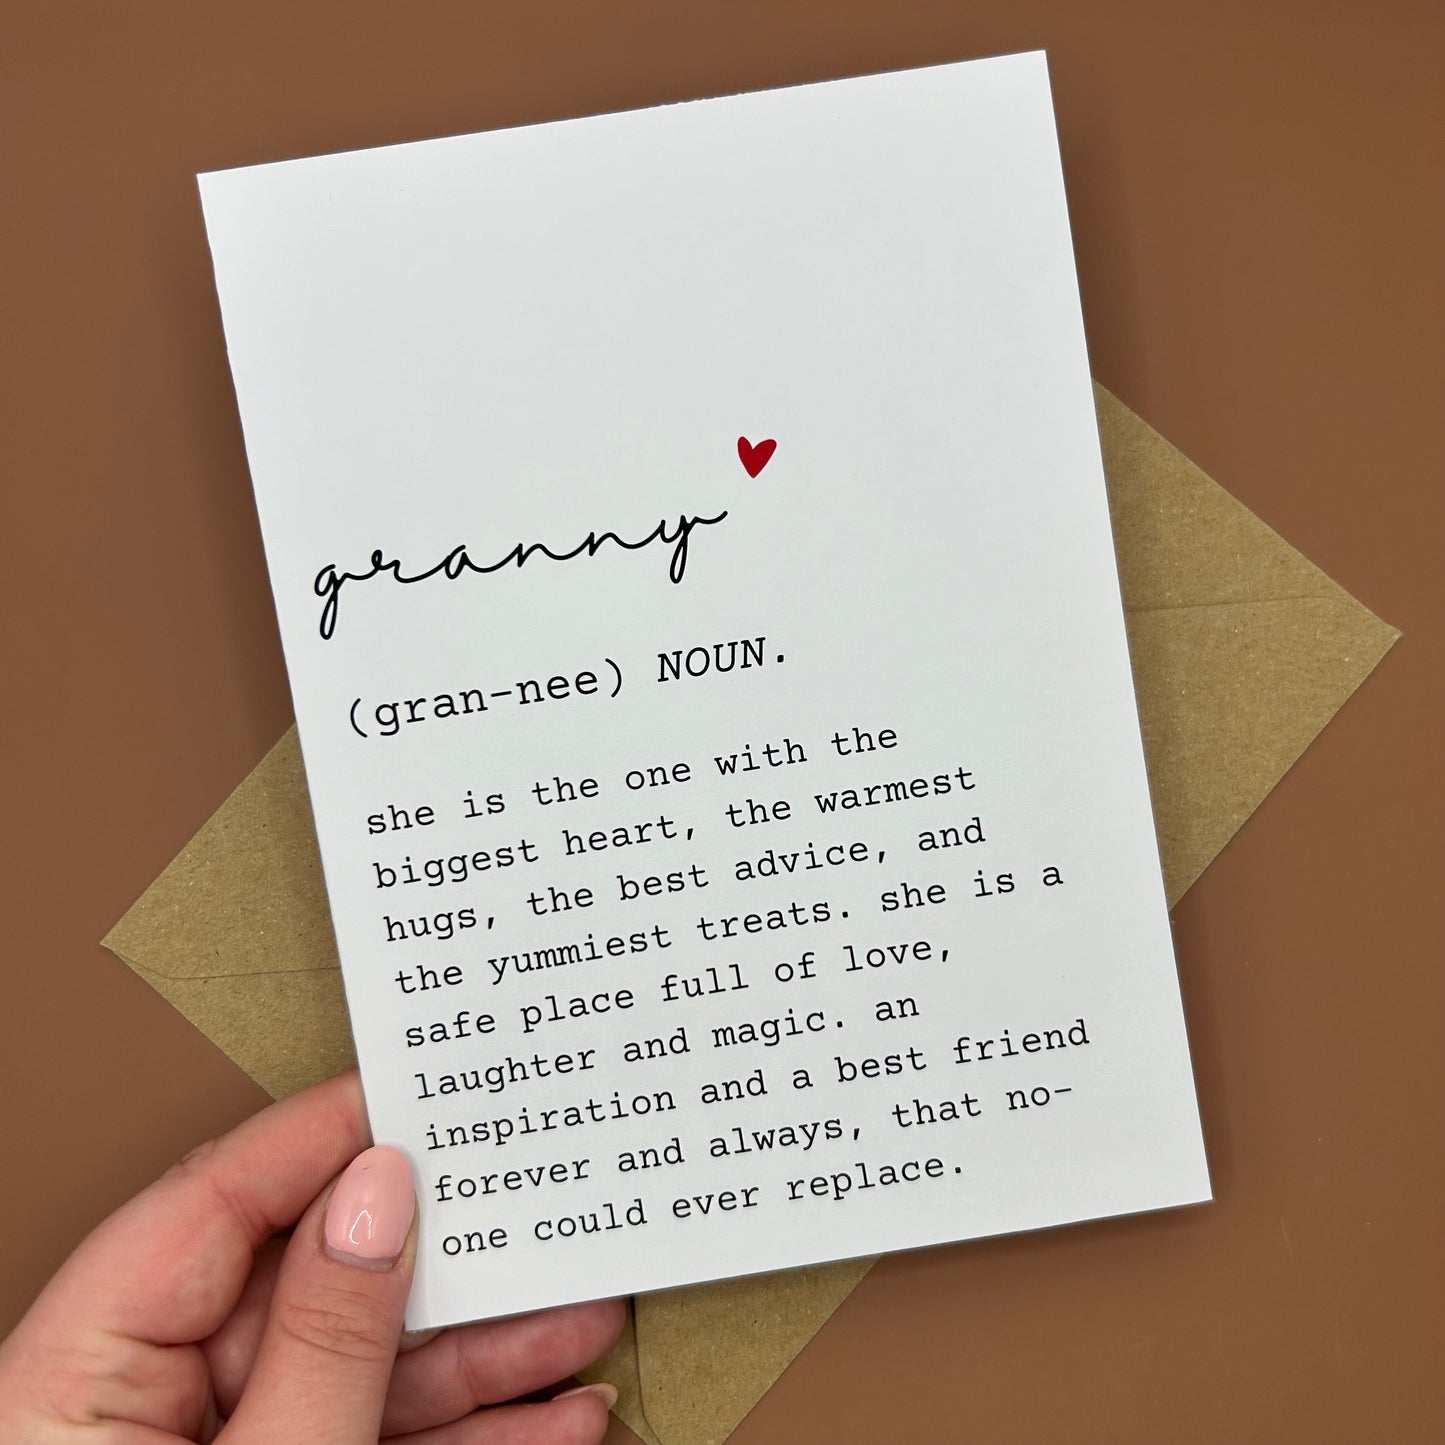 granny
(gran-nee) NOUN.
she is the one with the
biggest heart, the warmest
hugs, the best advice, and
the yummiest treats. she is a
safe place full of love,
laughter and magic. an
inspiration and a best friend
forever and always, that no-
one could ever replace.